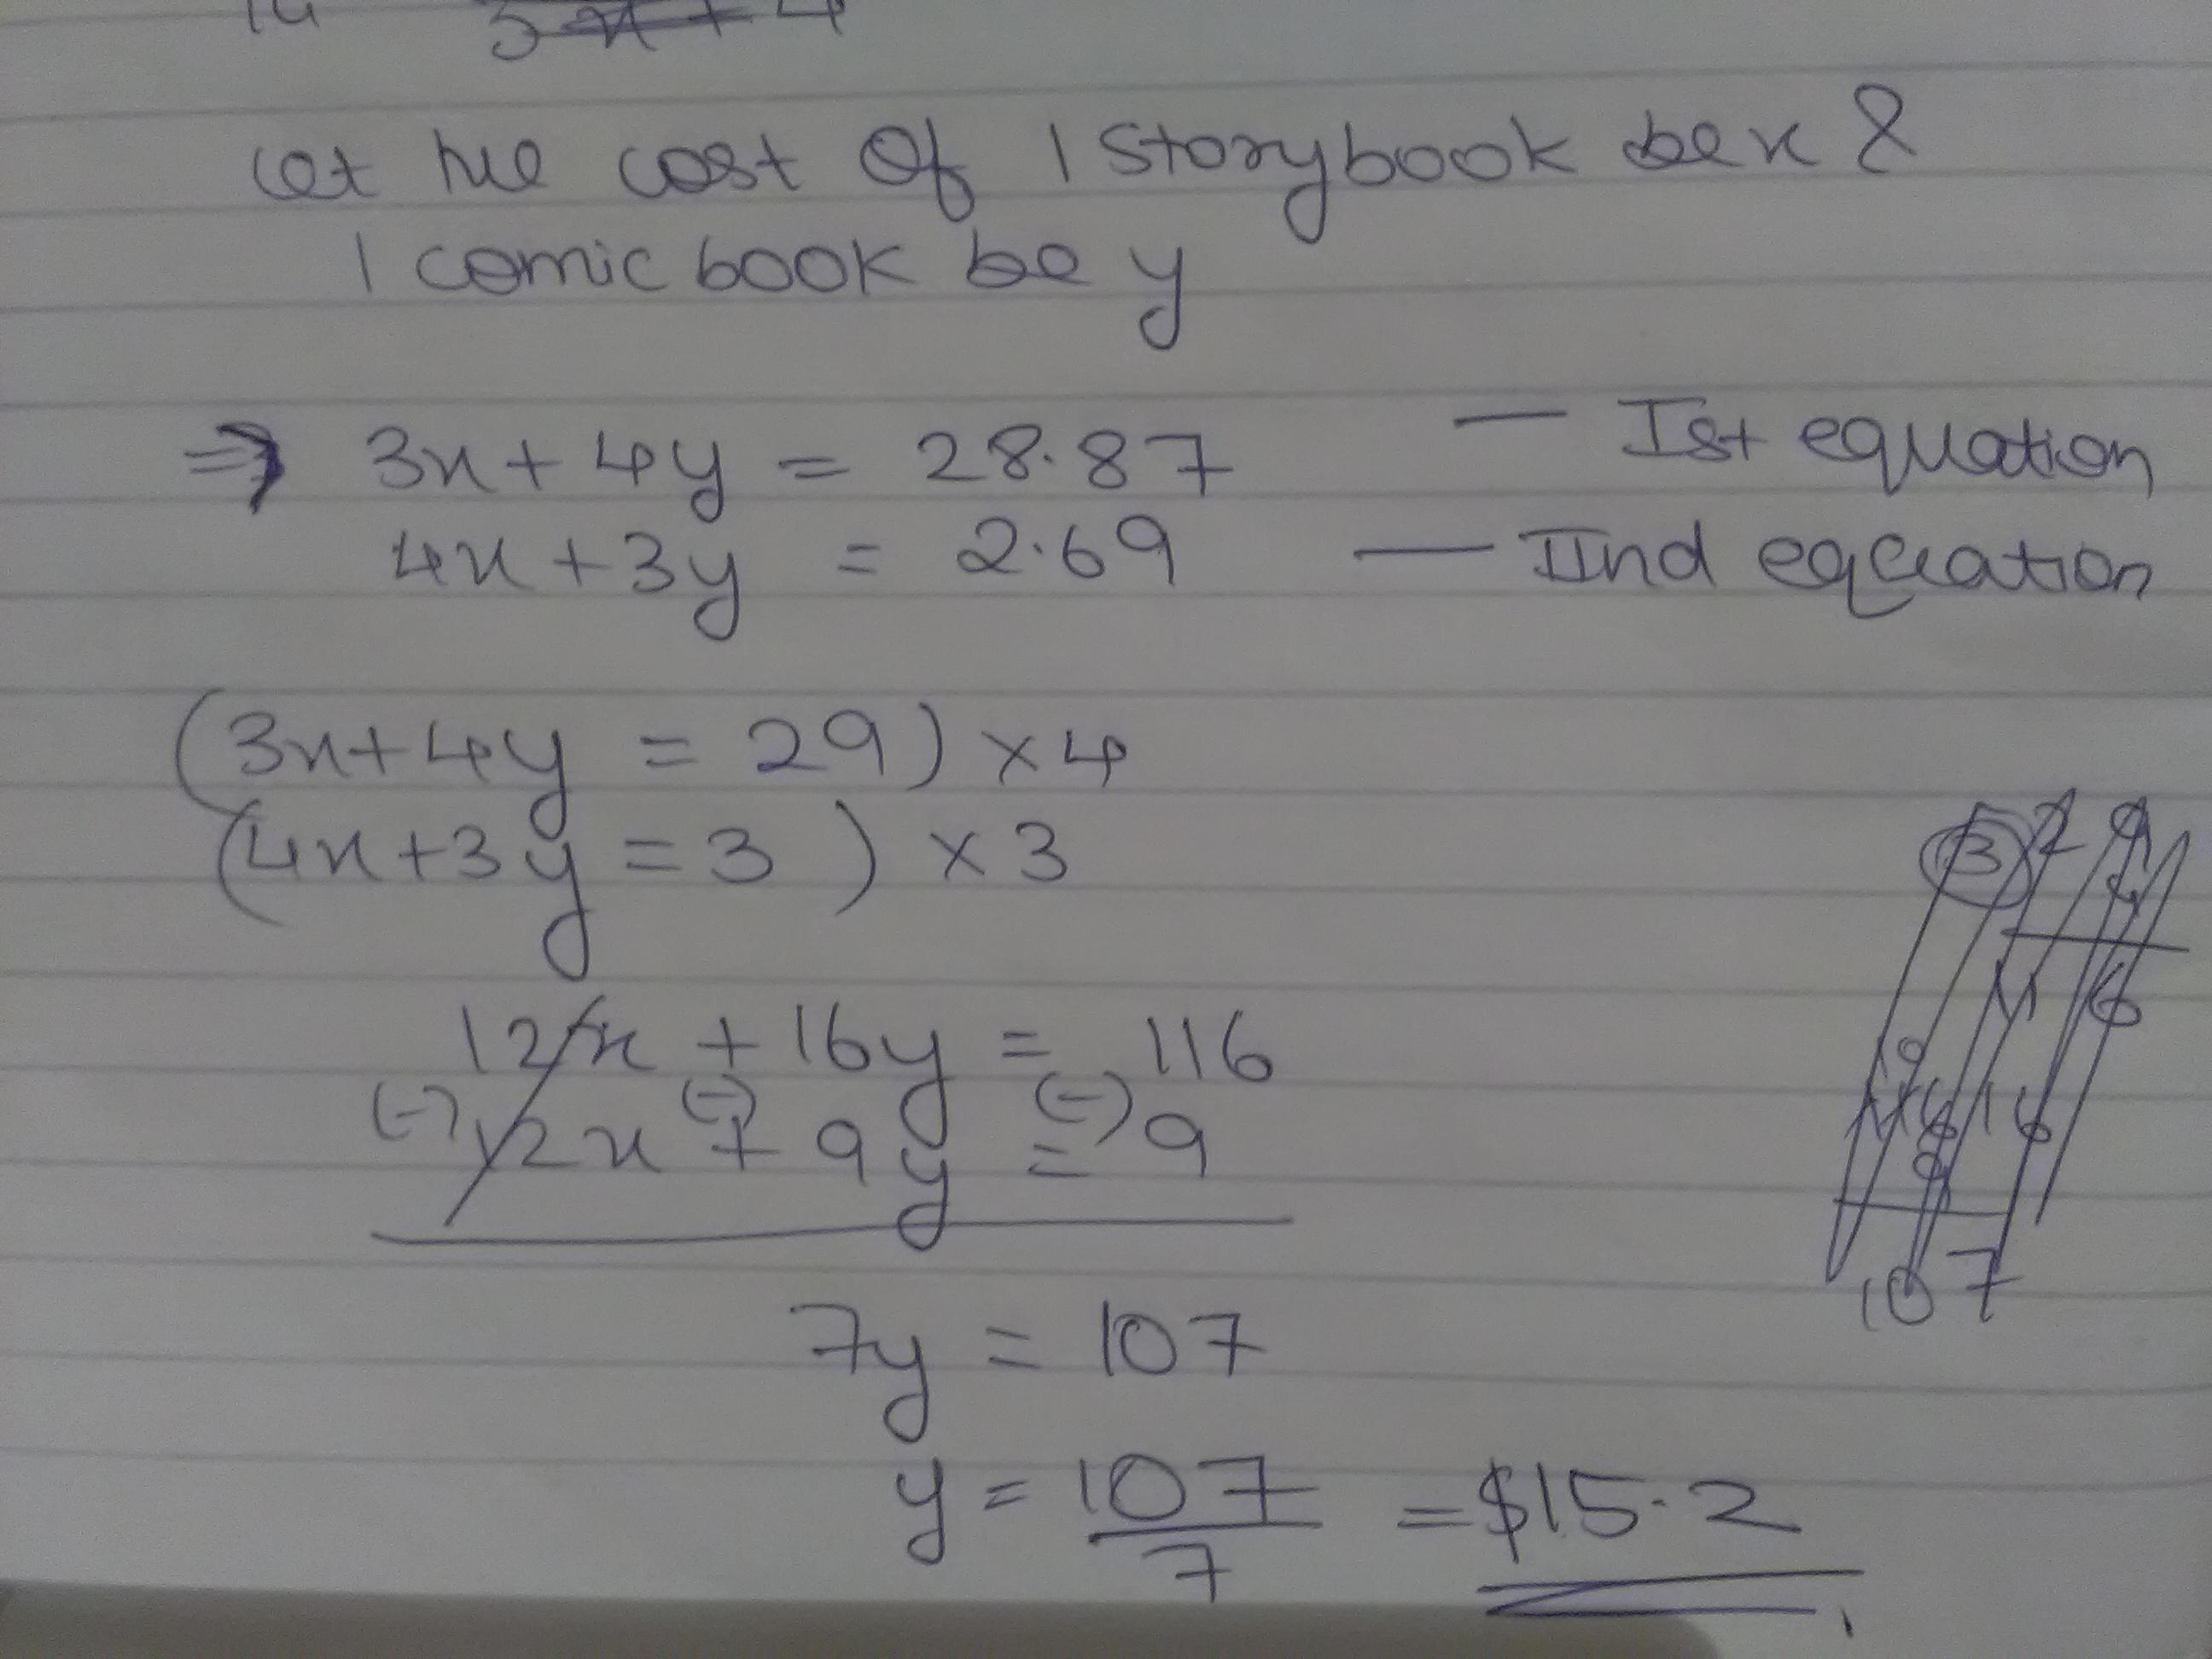 3x + 4
Let the cost of 1 storybook be x &
1 comic book be y
⇒ 3x + 4y = 28.87 — Ist equation
4x + 3y = 2.69 — IInd equation
(3x + 4y = 29) × 4
(4x + 3y = 3 ) × 3
12x + 16y = 116
(-) 12x (-) + 9y = (-) 9
7y = 107
107
y = 107/7 = $15.2